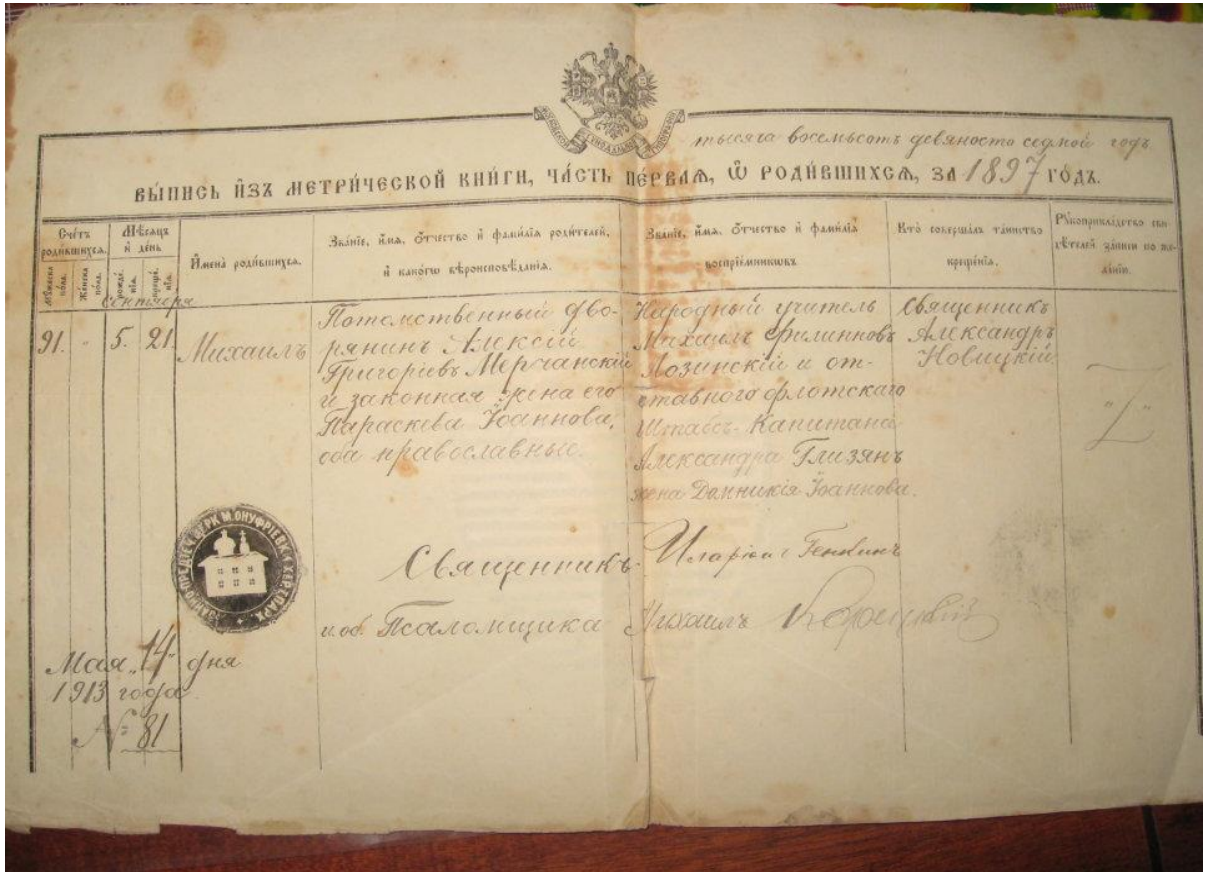 МОСКОВСКОЙ СѴНОДАЛЬНОЙ ТИПОГРАФІИ
тысяча восемьсотъ девяносто седмой годъ
ВЫ́ПИСЬ И҆ЗЪ МЕТРИ́ЧЕСКОЙ КНИ́ГИ, ЧА́СТЬ ПЕ́РВАѦ, Ѿ РОДИ́ВШИХСѦ, ЗА 1897 ГО́ДЪ.
Счётъ родившихсѧ.
Мѣсѧцъ и҆ де́нь
Мꙋжеска пола.
Женска пола.
рожде́нїѧ.
креще́нїѧ.
И҆мена̀ роди́вшихсѧ.
Зва́нїе, и҆́мѧ, ѻ҆́тчество и҆ фами́лїѧ роди́телей,
и҆ како́гѡ вѣроисповѣ́данїѧ.
Зва́нїе, и҆́мѧ, ѻ҆́тчество и҆ фами́лїѧ
воспрїе́мникѡвъ.
Кто̀ соверша́лъ та́инство
креще́нїѧ.
Рꙋкоприкла́дство сви-
дѣ́телей за́писи по же-
ла́нїю.
сентября
91. " 5. 21.
Михаилъ
Потомственный дво-
рянинъ Алексій
Григоріевъ Мерчанскій
и законная жена его
Параскева Іоаннова,
оба православные.
Народный учитель
Михаилъ Филипповъ
Лозинскій и от-
ставного флотскаго
Штабсъ-Капитана
Александра Глизянъ
жена Домникія Іоаннова.
Священникъ
Александръ
Новицкій
Священникъ Иларіонъ Генкинъ
и. об. Псаломщика Михаилъ
М. ОНУФРІЕВКИ ХЕР. ЕПАРХ.
Мая „14" дня
1913 года.
№ 81